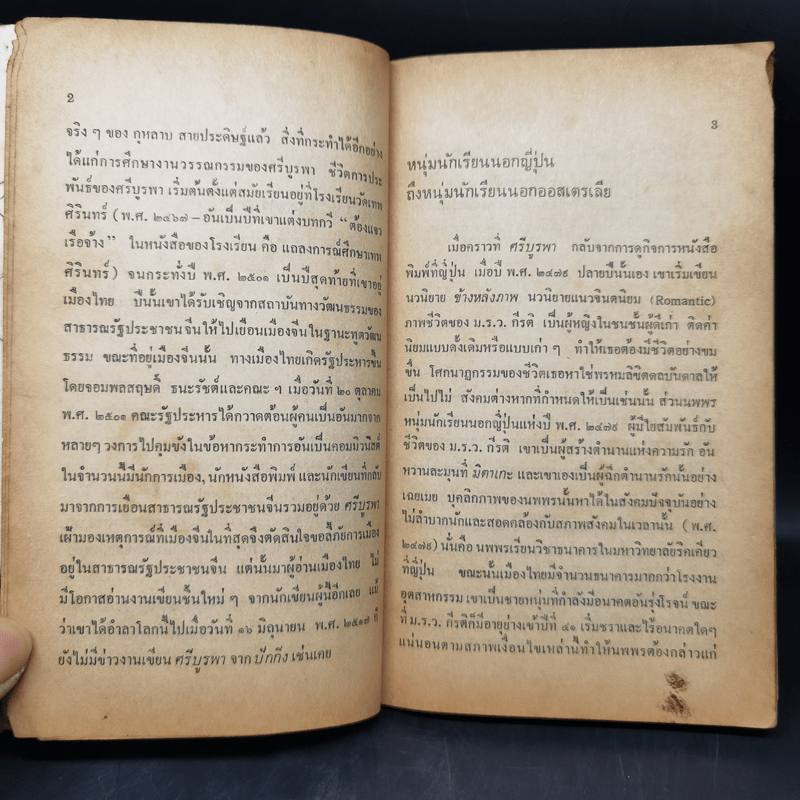 2
จริง ๆ ของ กุหลาบ สายประดิษฐ์แล้ว สิ่งที่กระทำได้อีกอย่าง
ได้แก่การศึกษางานวรรณกรรมของศรีบูรพา ชีวิตการประ
พันธ์ของศรีบูรพา เริ่มต้นตั้งแต่สมัยเรียนอยู่ที่โรงเรียนวัดเทพ
ศิรินทร์ (พ.ศ. ๒๔๖๗ – อันเป็นปีที่เขาแต่งบทกวี “ ต้องแจว
เรือจ้าง” ในหนังสือของโรงเรียน คือ แถลงการณ์ศึกษาเทพ
ศิรินทร์) จนกระทั่งปี พ.ศ. ๒๕๐๑ เป็นปีสุดท้ายที่เขาอยู่
เมืองไทย ปีนั้นเขาได้รับเชิญจากสถาบันทางวัฒนธรรมของ
สาธารณรัฐประชาชนจีนให้ไปเยือนเมืองจีนในฐานะทูตวัฒน
ธรรม ขณะที่อยู่เมืองจีนนั้น ทางเมืองไทยเกิดรัฐประหารขึ้น
โดยจอมพลสฤษดิ์ ธนะรัชต์และคณะ ฯ เมื่อวันที่ ๒๐ ตุลาคม
พ.ศ. ๒๕๐๑ คณะรัฐประหารได้กวาดต้อนผู้คนเป็นอันมากจาก
หลายๆ วงการไปคุมขังในข้อหากระทำการอันเป็นคอมมิวนิสต์
ในจำนวนนี้มีนักการเมือง, นักหนังสือพิมพ์ และนักเขียนที่กลับ
มาจากการเยือนสาธารณรัฐประชาชนจีนรวมอยู่ด้วย ศรีบูรพา
เฝ้ามองเหตุการณ์ที่เมืองจีนในที่สุดจึงตัดสินใจขอลี้ภัยการเมือง
อยู่ในสาธารณรัฐประชาชนจีน แต่นั้นมาผู้อ่านเมืองไทย ไม่
มีโอกาสอ่านงานเขียนชิ้นใหม่ ๆ จากนักเขียนผู้นี้อีกเลย แม้
ว่าเขาได้อำลาโลกนี้ไปเมื่อวันที่ ๑๖ มิถุนายน พ.ศ. ๒๕๑๗ ก็
ยังไม่มีข่าวงานเขียน ศรีบูรพา จาก ปักกิ่ง เช่นเคย
3
หนุ่มนักเรียนนอกญี่ปุ่น
ถึงหนุ่มนักเรียนนอกออสเตรเลีย
เมื่อคราวที่ ศรีบูรพา กลับจากการดูกิจการหนังสือ
พิมพ์ที่ญี่ปุ่น เมื่อปี พ.ศ. ๒๔๗๙ ปลายปีนั้นเอง เขาเริ่มเขียน
นวนิยาย ข้างหลังภาพ นวนิยายแนวจินตนิยม (Romantic)
ภาพชีวิตของ ม.ร.ว. กีรติ เป็นผู้หญิงในชนชั้นผู้ดีเก่า ติดค่า
นิยมแบบดั้งเดิมหรือแบบเก่า ๆ ทำให้เธอต้องมีชีวิตอย่างขม
ขื่น โศกนาฏกรรมของชีวิตเธอหาใช่พรหมลิขิตดลบันดาลให้
เป็นไปไม่ สังคมต่างหากที่กำหนดให้เป็นเช่นนั้น ส่วนนพพร
หนุ่มนักเรียนนอกญี่ปุ่นแห่งปี พ.ศ. ๒๔๗๙ ผู้มีใยสัมพันธ์กับ
ชีวิตของ ม.ร.ว. กีรติ เขาเป็นผู้สร้างตำนานแห่งความรัก อัน
หวานละมุนที่ มิตาเกะ และเขาเองเป็นผู้ฉีกตำนานรักนั้นอย่าง
เฉยเมย บุคลิกภาพของนพพรนั้นหาได้ในสังคมปัจจุบันอย่าง
ไม่ลำบากนักและสอดคล้องกับสภาพสังคมในเวลานั้น (พ.ศ.
๒๔๗๙) นั่นคือ นพพรเรียนวิชาธนาคารในมหาวิทยาลัยริคเคียว
ที่ญี่ปุ่น ขณะนั้นเมืองไทยมีจำนวนธนาคารมากกว่าโรงงาน
อุตสาหกรรม เขาเป็นชายหนุ่มที่กำลังมีอนาคตอันรุ่งโรจน์ ขณะ
ที่ ม.ร.ว. กีรติก็มีอายุย่างเข้าปีที่ ๔๑ เริ่มชราและไร้อนาคตใดๆ
แน่นอนตามสภาพเงื่อนไขเหล่านี้ทำให้นพพรต้องกล่าวแก่